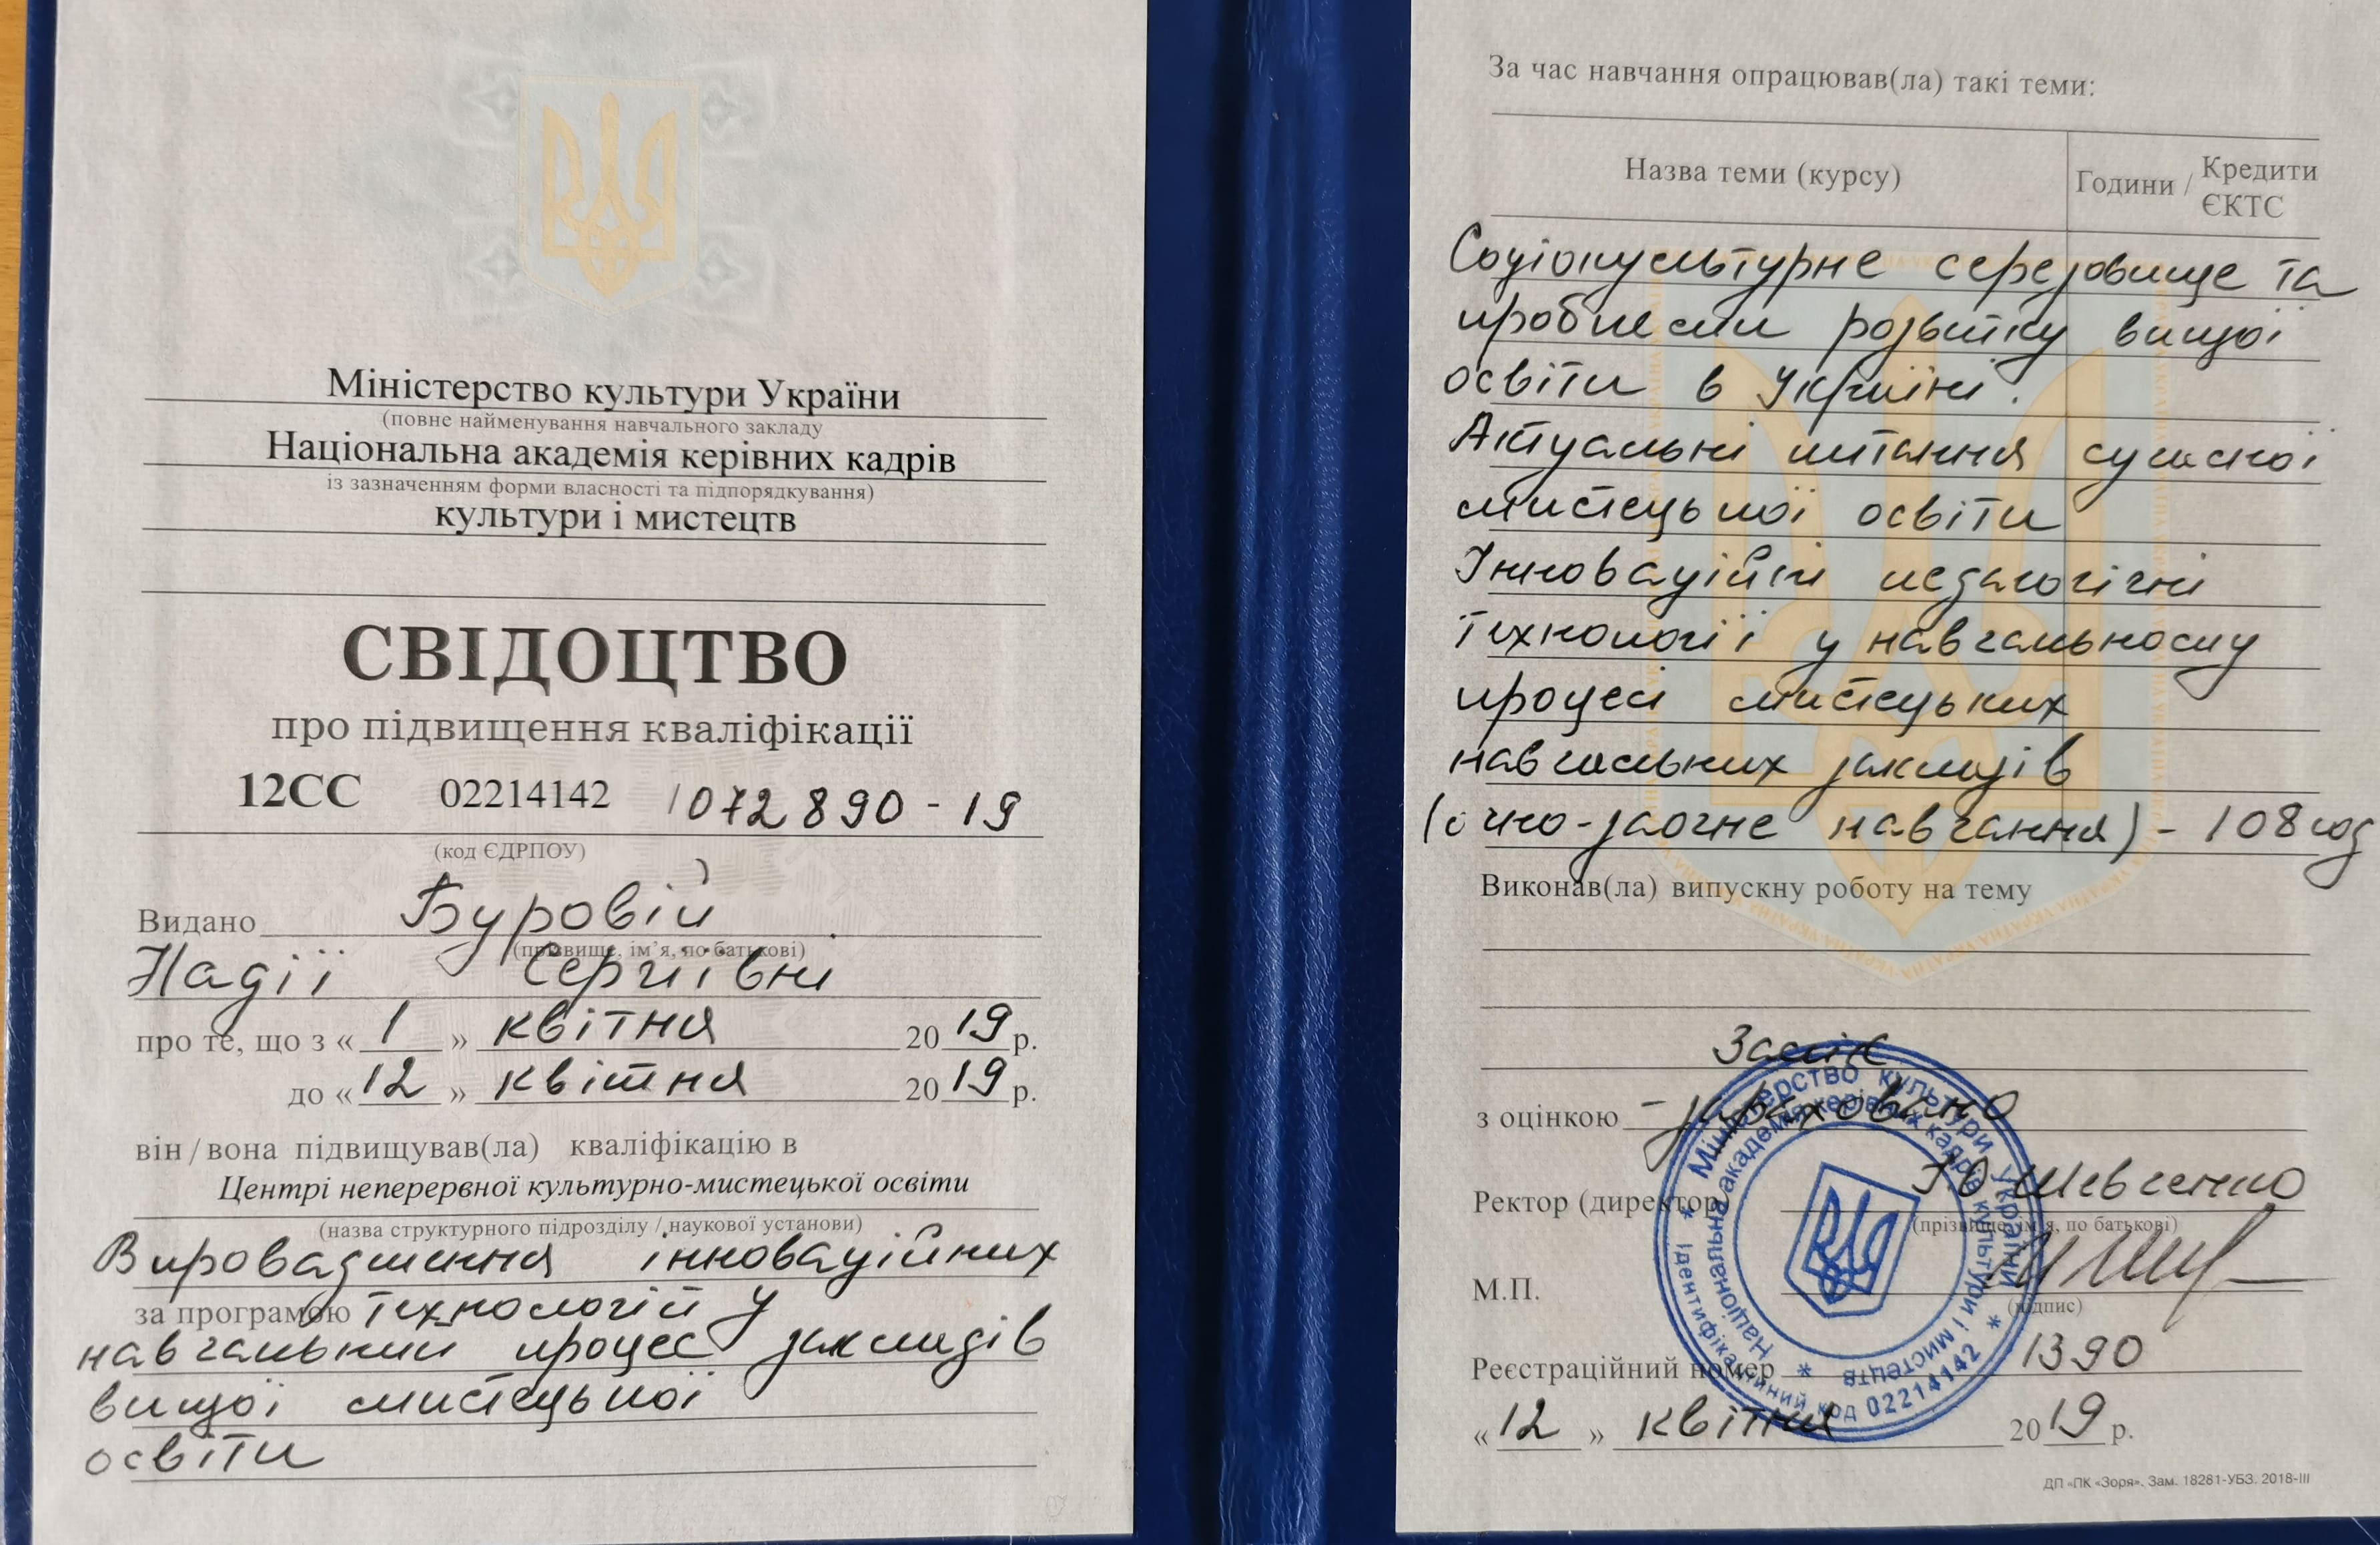 Міністерство культури України
(повне найменування навчального закладу
Національна академія керівних кадрів
із зазначенням форми власності та підпорядкування)
культури і мистецтв
СВІДОЦТВО
про підвищення кваліфікації
12СС 02214142 /072890-19
(код ЄДРПОУ)
Видано Буровій
(прізвище, ім’я, по батькові)
Надії Сергіївні
про те, що з « 1 » квітня 2019 р.
до « 12 » квітня 2019 р.
він / вона підвищував(ла) кваліфікацію в
Центрі неперервної культурно-мистецької освіти
(назва структурного підрозділу / наукової установи)
Впровадження інноваційних
за програмою технологій у
навчальний процес закладів
вищої мистецької
освіти
За час навчання опрацював(ла) такі теми:
Назва теми (курсу) Години / Кредити ЄКТС
Соціокультурне середовище та
проблеми розвитку вищої
освіти в Україні.
Актуальні питання сучасної
мистецької освіти
Інноваційні педагогічні
технології у навчальному
процесі мистецьких
навчальних закладів
(очно-заочне навчання) - 108 год
Виконав(ла) випускну роботу на тему
Залік
з оцінкою - зараховано
Ректор (директор) Шевченко
(прізвище, ім’я, по батькові)
М.П.
(підпис)
Реєстраційний номер 1390
« 12 » квітня 2019 р.
Міністерство культури України
Національна академія керівних кадрів культури і мистецтв
Ідентифікаційний код 02214142
ДП «ПК «Зоря». Зам. 18281-УБЗ. 2018-III